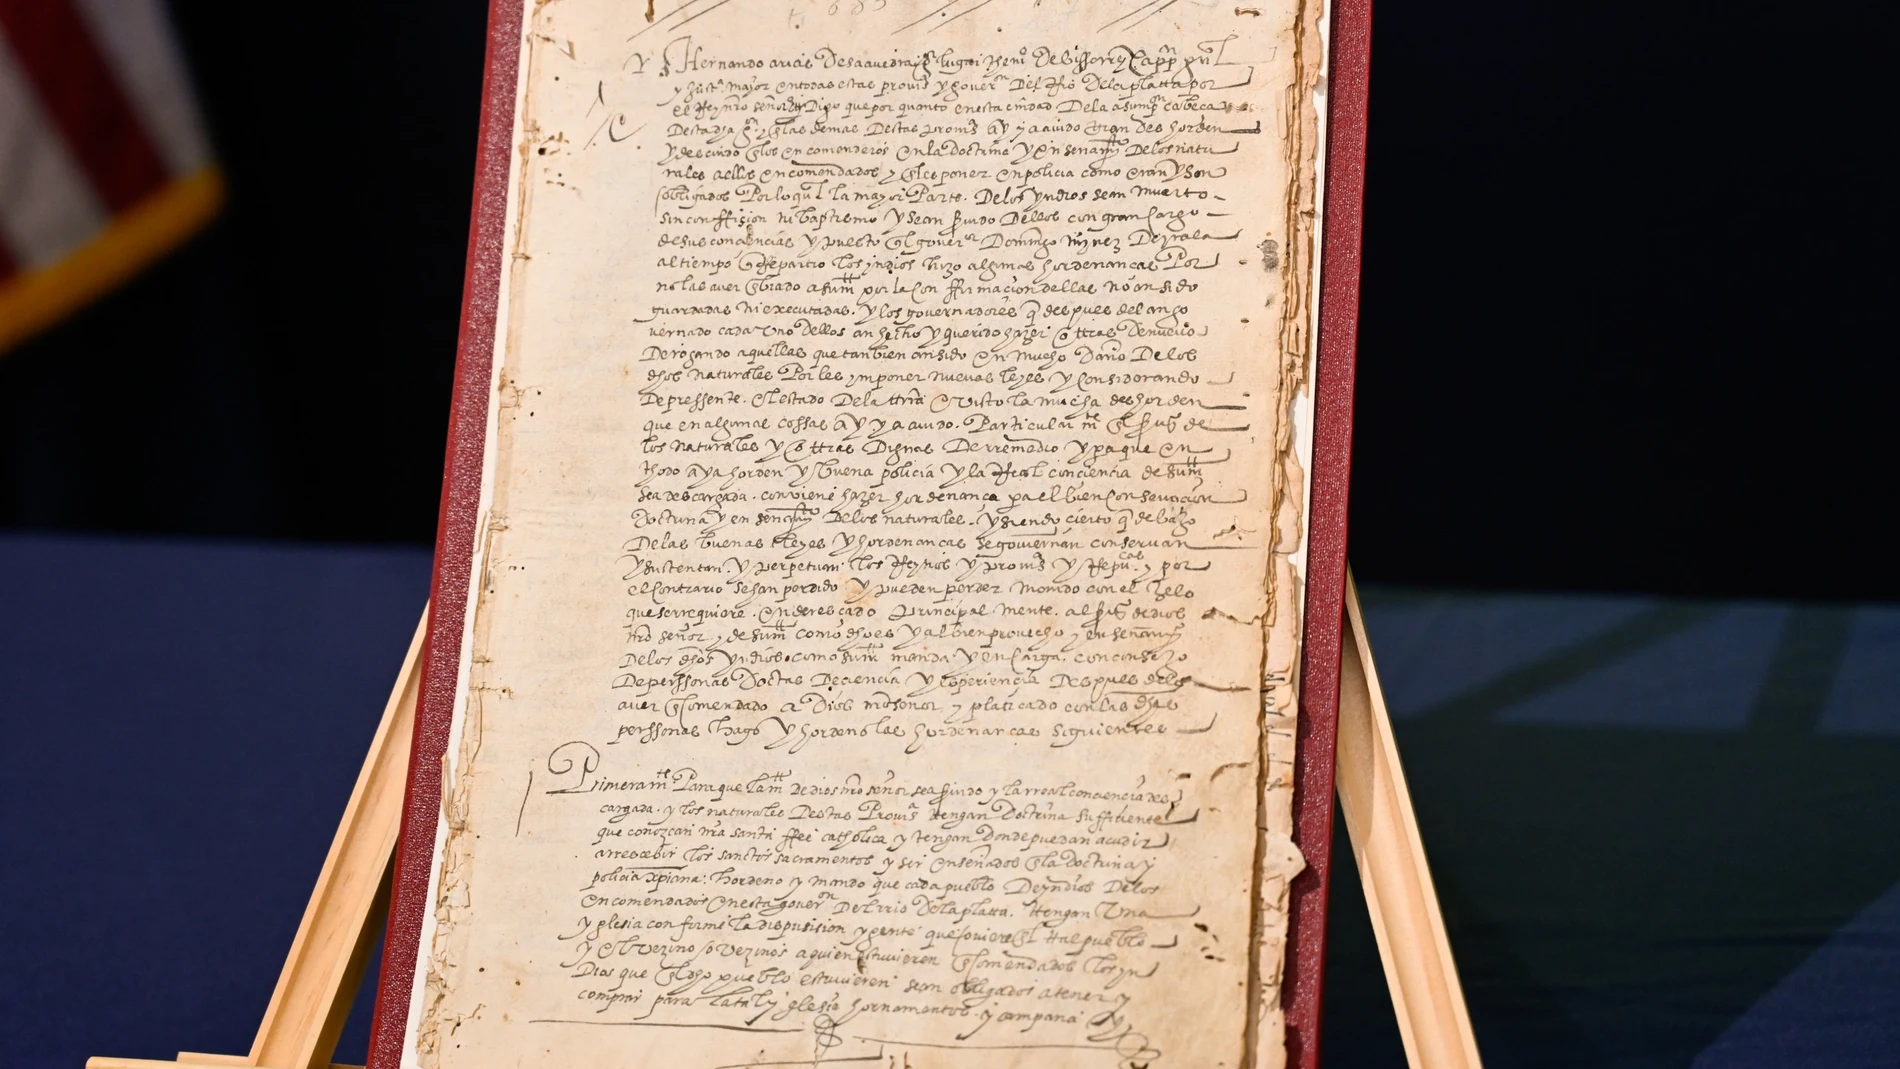 Hernando arias De saavedra lugar theni^e De Vissorrey Capp^n g^ral
y Just^a mayor en todas estas provi^as y gover^on Del Rio Dela platta por
el Rey nro señor Digo que por quanto en esta ciudad De la asump^on cabeca
Desta g^on y las demas Destas provi^as ay y a avido gran des horden
y descuido en los encomenderos en la doctrina y en señam^to Delos natu
rales a ellos encomendados y en les poner en policia como eran y son
obligados Por lo qual la mayor Parte. De los yndios sean muerto
sin conffision ni baptismo y sean servido Dellos con gran cargo
de sus conciencias y puesto que el gover^or Domingo mrnez De yrala
al tiempo que Repartio los yndios hizo algunas hordenancas Por
no las aver enbiado a su m^t por la Con ffirmacion dellas no an sido
guardadas ni executadas. y los governadores q despues del an go
vernado cada Uno Dellos an hecho y querido hazer otras De nuevo
Derogando aquellas que tanbien an sido en mucho Daño De los
dhos naturales Por les ymponer nuevas leyes y Considerando
De pressente. el estado De la ttrra e visto la mucha des horden
que en algunas cossas ay y a avido. Particularm^te en el serui^o de
los naturales y otras Dignas De rremedio y pa que en
thodo aya horden y buena policia y la Real conciencia de su m^t
sea descargada. conviene hazer hordenanca pa el bien Conservacion
Doctrina y en señam^to De los naturales. y siendo cierto q debaxo
De las buenas leyes y hordenancas se goviernan conservan
y sustentan. y perpetuan los Reynos y provi^as y Repu^cas. y por
el Contrario se han perdido y pueden perder movido con el zelo
que se rrequiere. enderescado principal mente. al serui^o de dios
nro señor y de su m^t como dho es y al bien provecho y enseñam^to
De los dhos yndios como su m^t manda y en Carga. con consejo
De perssonas Doctas De ciencia y esperiencia Despues de lo
aver encomendado a Dios nro señor y platicado con las dhas
perssonas hago y hordeno las hordenancas siguientes
Primeram^te Para que la m^t de dios nro señor sea servido y la rreal conciencia des
cargada. y los naturales Destas Provi^as tengan Doctrina sufficiente
que conozcan nra santa ffee catholica y tengan donde puedan acudir
a rrescebir los sanctos sacramentos y ser enseñados en la doctrina y
policia xpiana: hordeno y mando que cada pueblo De yndios De los
encomendados en esta gover^on Del rrio De la platta. ttengan Una
yglesia conforme la dispusision y gente que oviere en el tal pueblo
y el vezino o vezinos a quien estuvieren encomendados los yn
Dios que en el dho pueblo estuvieren sean obligados a tener y
comprar para la tal yglesia hornamentos. y campana